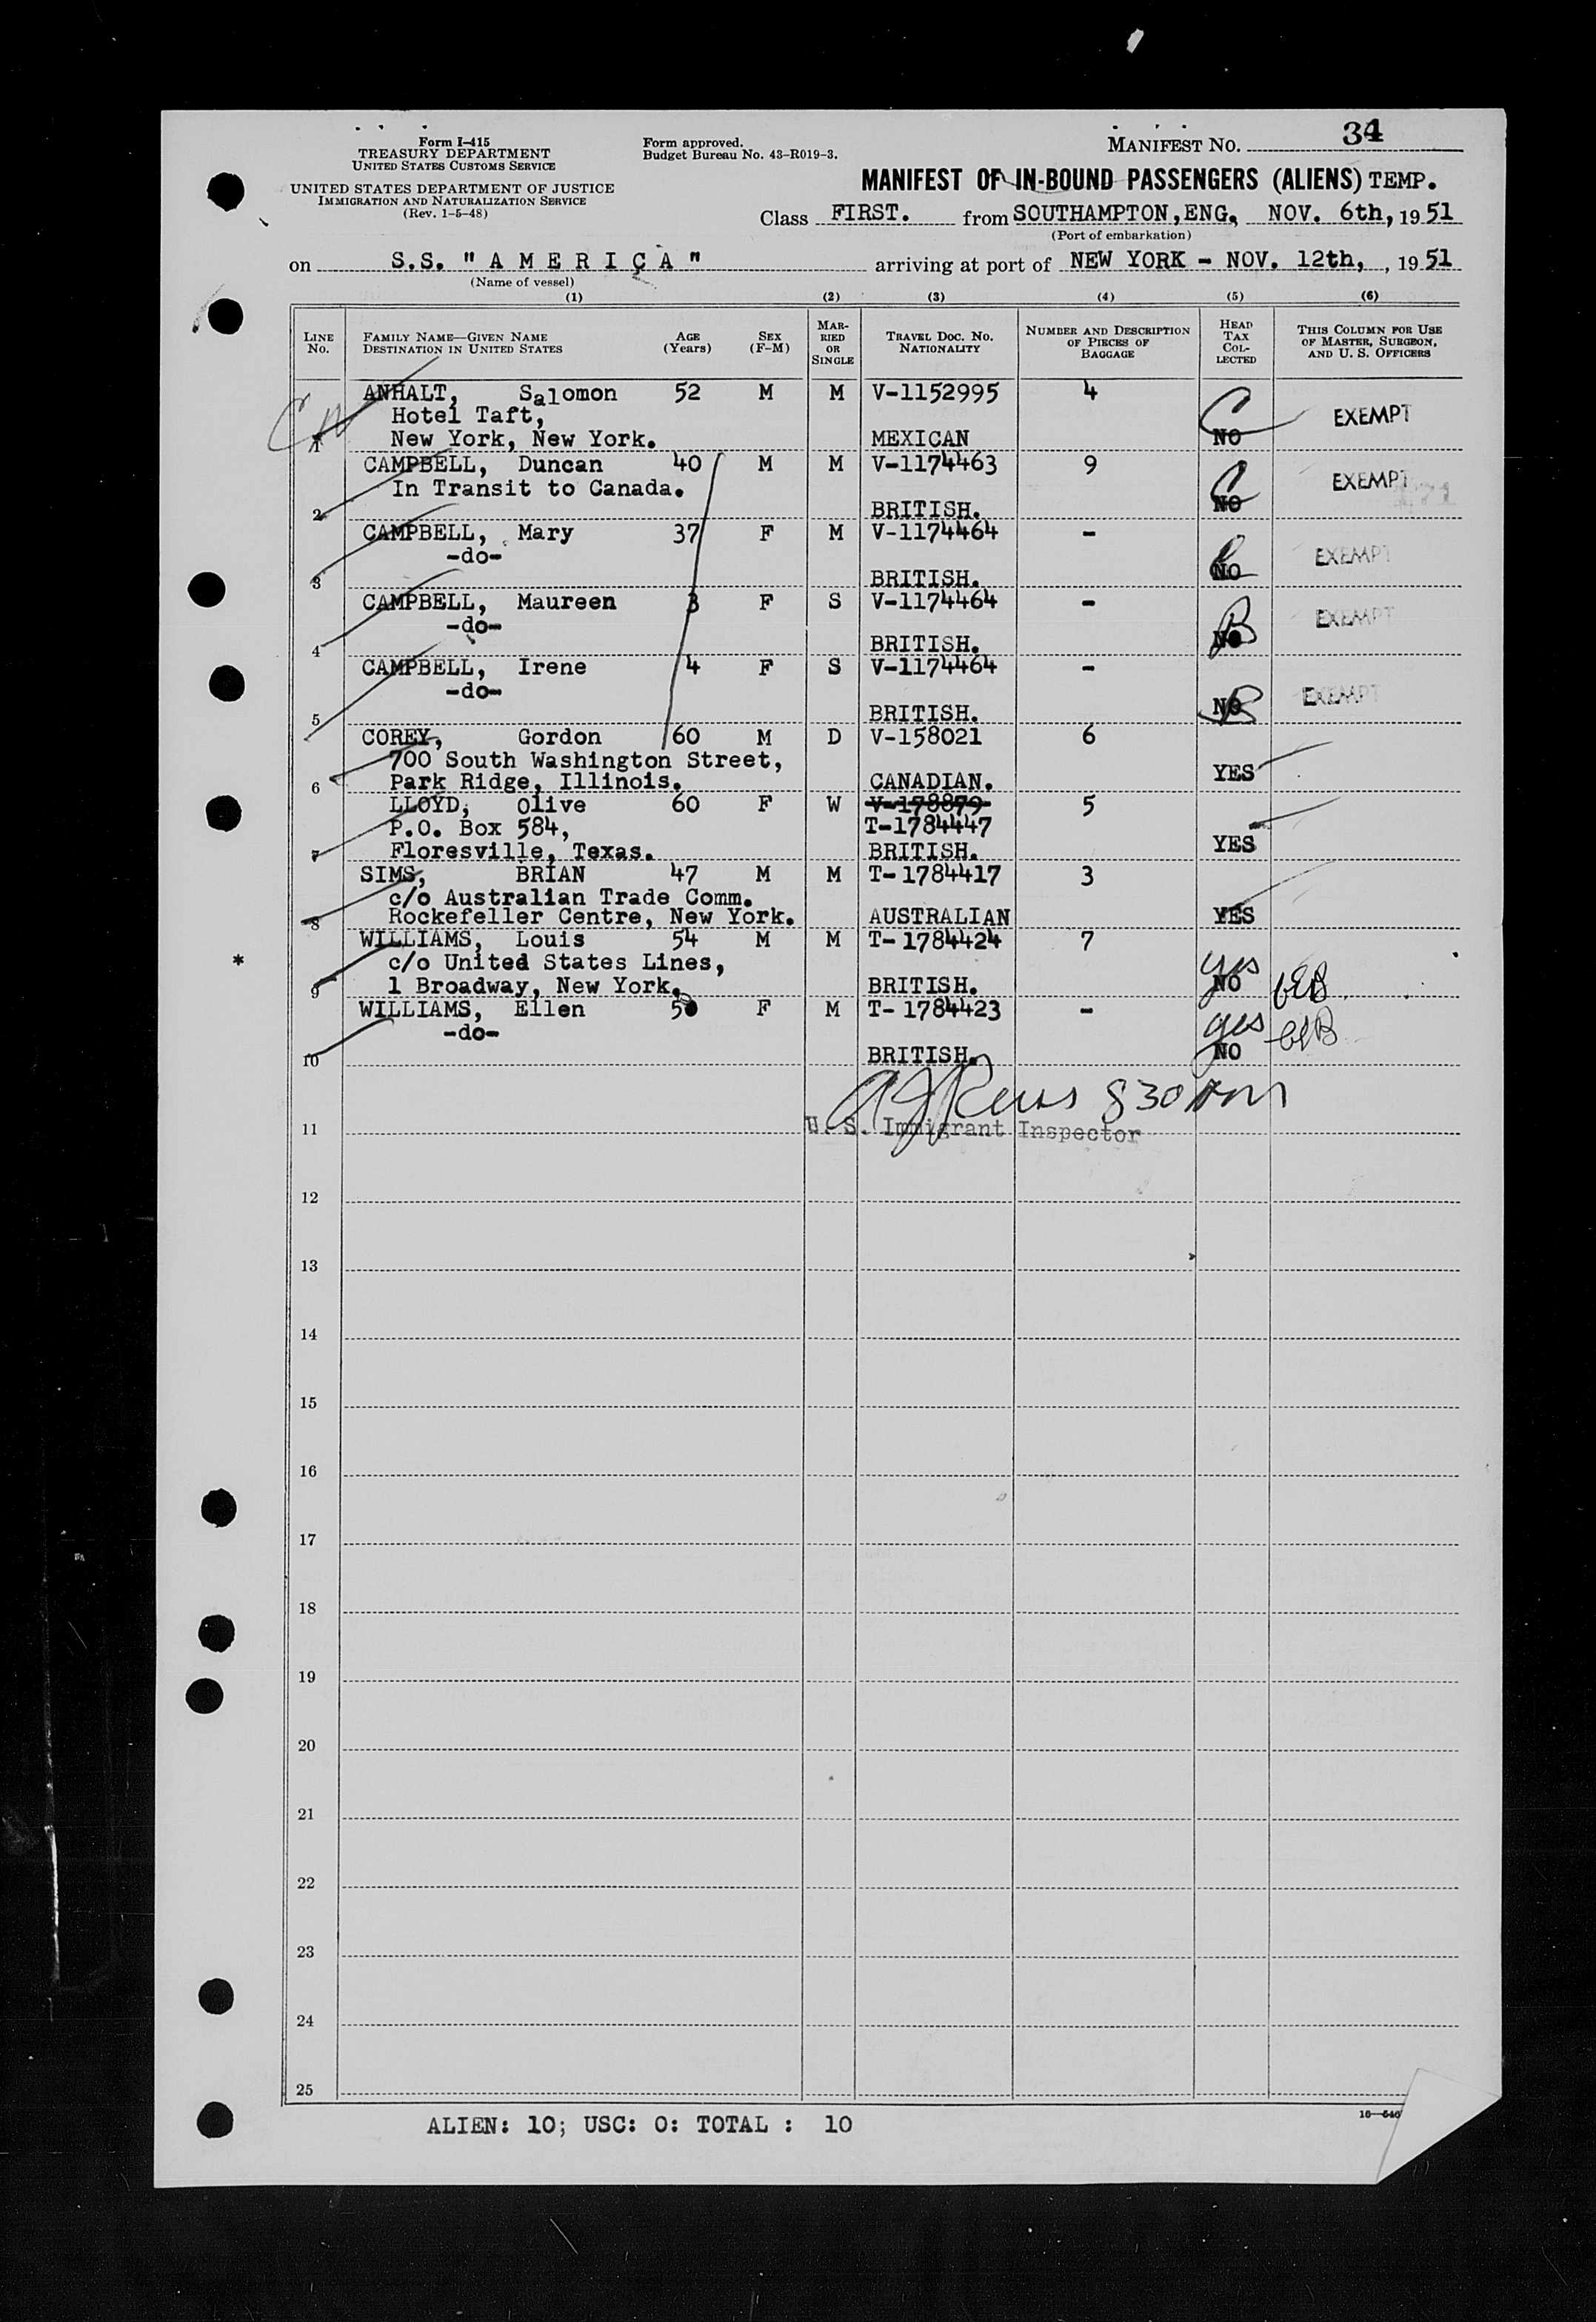 Form I-415
TREASURY DEPARTMENT
UNITED STATES CUSTOMS SERVICE
UNITED STATES DEPARTMENT OF JUSTICE
IMMIGRATION AND NATURALIZATION SERVICE
(Rev. 1-5-48)
Form approved.
Budget Bureau No. 43-R019-3.
MANIFEST NO. 34
MANIFEST OF IN-BOUND PASSENGERS (ALIENS) TEMP.
Class FIRST. from SOUTHAMPTON, ENG, NOV. 6th, 1951
(Port of embarkation)
on S.S. "AMERICA" arriving at port of NEW YORK - NOV. 12th, , 1951
(Name of vessel)
(1) (2) (3) (4) (5) (6)
LINE No. FAMILY NAME—GIVEN NAME DESTINATION IN UNITED STATES AGE (Years) SEX (F-M) MARRIED OR SINGLE TRAVEL DOC. NO. NATIONALITY NUMBER AND DESCRIPTION OF PIECES OF BAGGAGE HEAD TAX COLLECTED THIS COLUMN FOR USE OF MASTER, SURGEON, AND U. S. OFFICERS
ANHALT, Salomon 52 M M V-1152995 4
Hotel Taft, EXEMPT
1 New York, New York. MEXICAN NO
CAMPBELL, Duncan 40 M M V-1174463 9
In Transit to Canada. EXEMPT
2 BRITISH. NO
CAMPBELL, Mary 37 F M V-1174464 -
-do- EXEMPT
3 BRITISH. NO
CAMPBELL, Maureen 3 F S V-1174464 -
-do- EXEMPT
4 BRITISH. NO
CAMPBELL, Irene 4 F S V-1174464 -
-do- EXEMPT
5 BRITISH. NO
COREY, Gordon 60 M D V-158021 6
700 South Washington Street,
6 Park Ridge, Illinois. CANADIAN. YES
LLOYD, Olive 60 F W V-178879 5
P.O. Box 584, T-1784447
7 Floresville, Texas. BRITISH. YES
SIMS, BRIAN 47 M M T-1784417 3
c/o Australian Trade Comm.
8 Rockefeller Centre, New York. AUSTRALIAN YES
WILLIAMS, Louis 54 M M T-1784424 7
* c/o United States Lines, yes
9 1 Broadway, New York. BRITISH. NO
WILLIAMS, Ellen 50 F M T-1784423 -
-do- yes
10 BRITISH. NO
830 AM
11 U. S. Immigrant Inspector
12
13
14
15
16
17
18
19
20
21
22
23
24
25
ALIEN: 10; USC: 0: TOTAL : 10